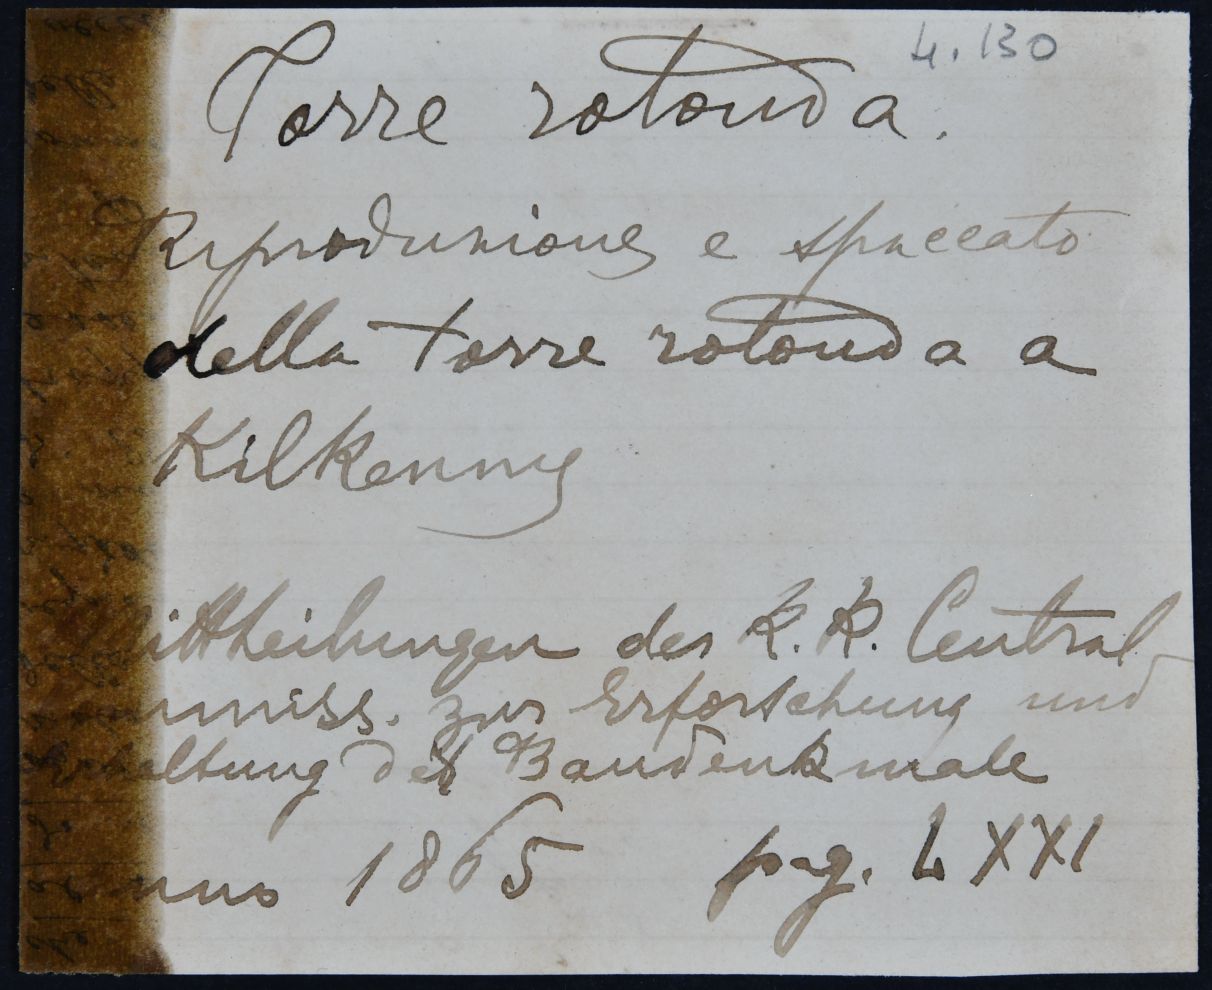 4.130
Torre rotonda.
Riproduzione e spaccato
della torre rotonda a
Kilkenny
Mittheilungen der K. K. Central-
commiss. zur Erforschung und
Erhaltung der Baudenkmale
anno 1865 pag. LXXI